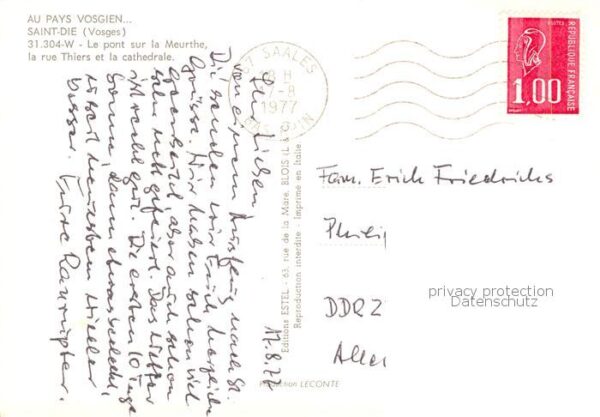 AU PAYS VOSGIEN...
SAINT-DIE (Vosges)
31.304-W - Le pont sur la Meurthe,
la rue Thiers et la cathedrale.
67 SAALES
H
-8
1977
BAS-RHIN
POSTES
REPUBLIQUE FRANÇAISE
1,00
Ihr Lieben,
von einem Ausflug nach St.
Die senden wir Euch herzliche
Grüsse. Wir haben schon viel
gearbeitet, aber auch schon
gefeiert. Das Wetter
ist recht gut. Die ersten 10 Tage
Sonne, dann etwas schlecht,
wieder
besser. Eure
17.8.77
Editions ESTEL - 63, rue de la Mare, BLOIS (L & C)
Reproduction interdite - Imprimé en Italie
LECONTE
Fam. Erich Friedrichs
privacy protection
Datenschutz